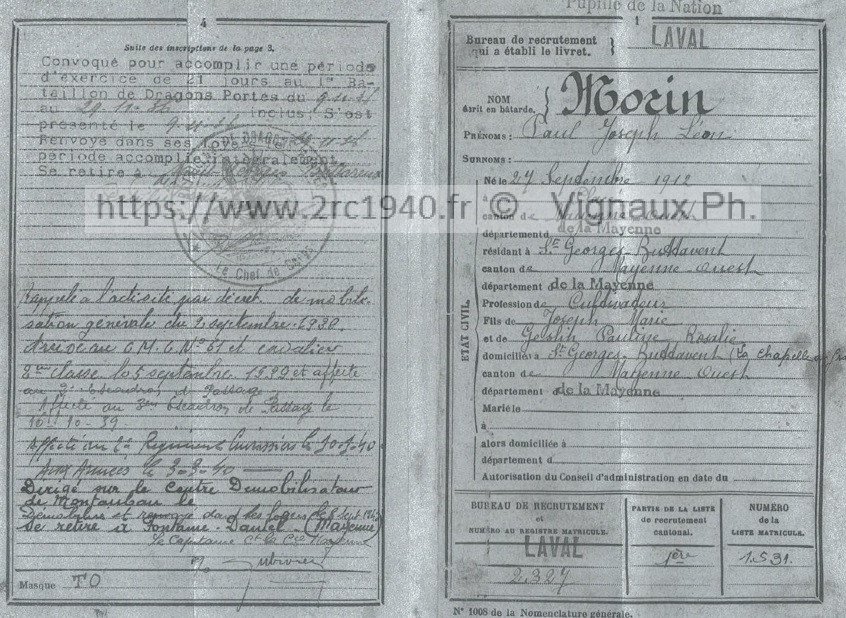 4
Suite des inscriptions de la page 3.
Convoqué pour accomplir une période
d'exercice de 21 jours au 1er Ba-
taillon de Dragons Portés du
au inclus. S'est
présenté le
Renvoyé dans ses foyers le
période accomplie intégralement
Se retire à
Le Chef de
Rappelé à l'activité par décret de mobili-
sation générale du 2 septembre 1939.
Arrivé au C.M.C. N° 61 et cavalier
2ème classe le 5 septembre 1939 et affecté
au 3e escadron de Passage
Affecté au 3em Escadron de Passage le
10-10-39
Affecté au Régiment Cuirassiers le
aux Armées le 3-3-40
Dirigé sur le Centre Démobilisateur
de Montauban le
Démobilisé et renvoyé dans ses foyers le
Se retire à Fontaine-Daniel (Mayenne)
Le Capitaine Ct la Cie
Masque TO
Pupille de la Nation
1
Bureau de recrutement
qui a établi le livret.
LAVAL
NOM
écrit en bâtarde.
Morin
PRÉNOMS : Paul Joseph Léon
SURNOMS :
Né le 27 Septembre 1912
à
canton de
département de la Mayenne
résidant à St Georges-Buttavent
canton de Mayenne-Ouest
département de la Mayenne
Profession de Cultivateur
Fils de Joseph Marie
et de Pauline Rosalie
domiciliés à St Georges-Buttavent (la chapelle
canton de Mayenne-Ouest
département de la Mayenne
Marié le
à
alors domiciliée à
département d
Autorisation du Conseil d'administration en date du
ÉTAT CIVIL.
BUREAU DE RECRUTEMENT
et
NUMÉRO AU REGISTRE MATRICULE.
LAVAL
2.327
PARTIE DE LA LISTE
de recrutement
cantonal.
1ère
NUMÉRO
de la
LISTE MATRICULE.
1.531.
N° 1008 de la Nomenclature générale.
https://www.2rc1940.fr © Vignaux Ph.